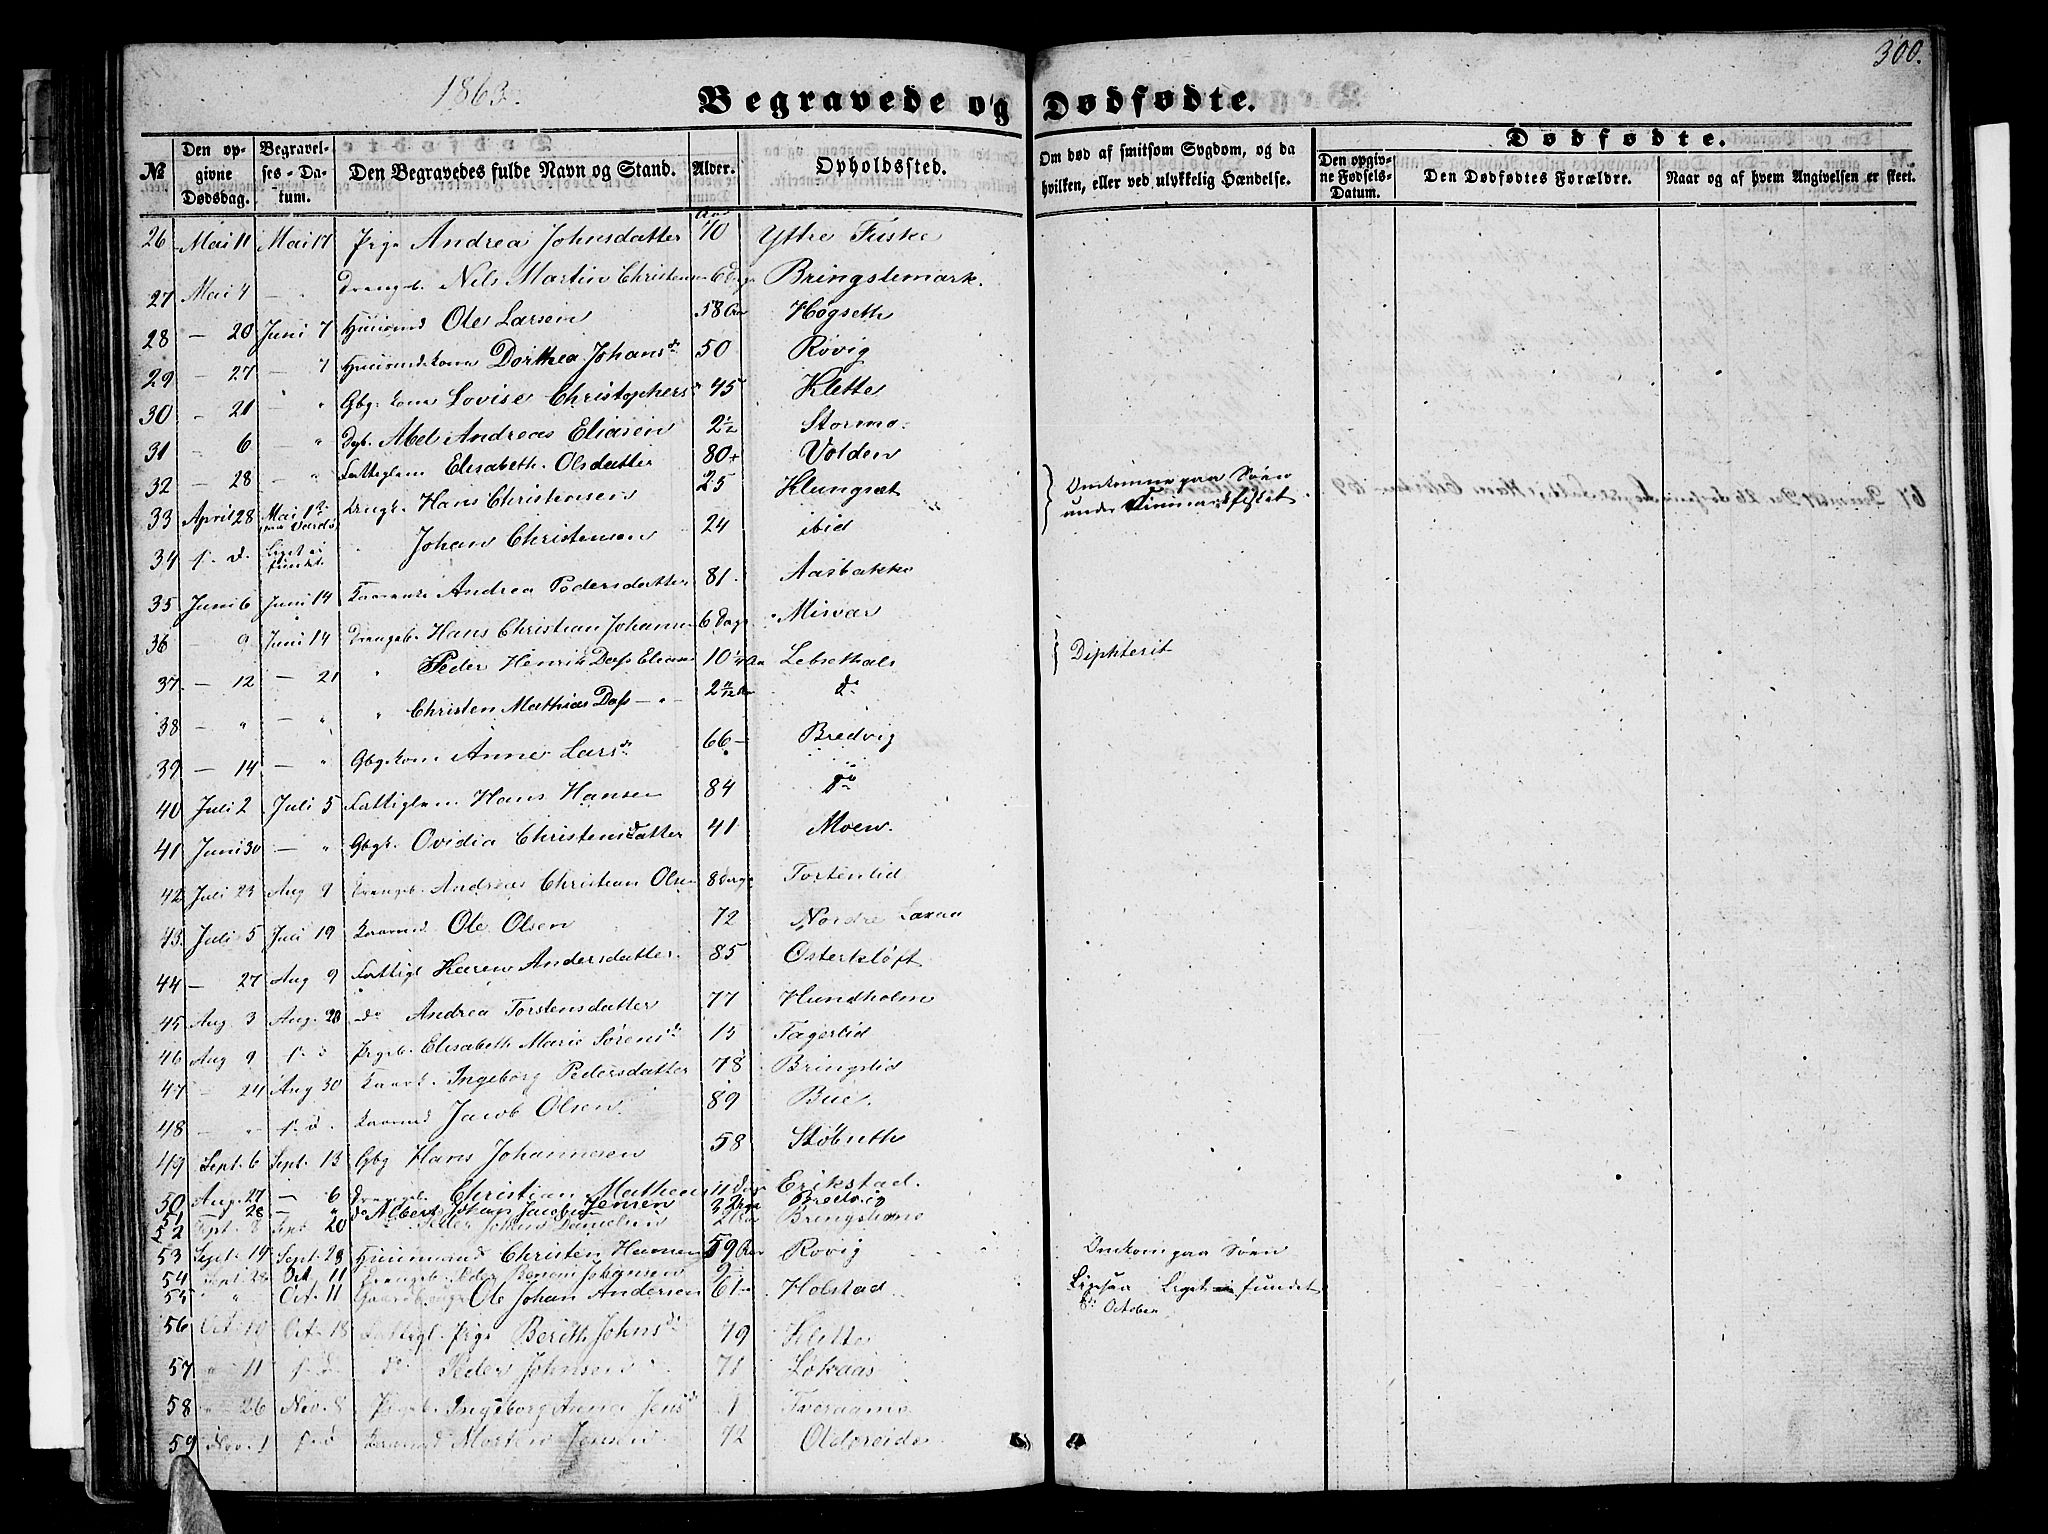 300.
1863.
Begravede og Dødfødte.
№
Den opgivne Dødsdag.
Begravelses-Datum.
Den Begravedes fulde Navn og Stand.
Alder.
Opholdssted.
Om død af smitsom Sygdom, og da hvilken, eller ved ulykkelig Hændelse.
Dødfødte.
Den opgivne Fødsels-Datum.
Den Dødfødtes Forældre.
Naar og af hvem Angivelsen er skeet.
Aar
26 Mai 11 Mai 17 Pige Andrea Johnsdatter 70 Yttre Fuske
27 Mai 4 - " Drengeb. Nils Martin Christensen 6 Dage Bringslimark.
28 - 20 Juni 7 Huusmd Ole Larsen 58 Aar Høgseth
29 - 27 - 7 Huusmdskone Dorthea Johansd. 50 Røvig
30 - 21 - " Gbg. kone Lovise Christophersd. 45 Klette
31 - 6 - " Dgb. Abel Andreas Eliasen 2 1/2 Stormo
32 - 28 - " Fattiglem Elisabeth Olsdatter 80 Valden
33 April 28 Mai 13 paa Vardø Ungk. Hans Christensen 25 Klungset Omkomne paa Søen under Finmarksfisket
34 s. d. Liget ei fundet " Johan Christensen 24 ibid
35 Juni 6 Juni 14 Kaarenke Andrea Pedersdatter 81 Aasbakke
36 - 9 Juni 14 Drengeb. Hans Christian Johansen 6 Dage Misvær
37 - 12 - 21 " Peder Henrik Dass Eliasen 10 1/4 Aar Lebsethals Diphterit
38 - " - " " Christen Mathias Dass - " - 2 11/12 Aar do
39 - 14 - " Gbg. kone Anne Larsd. 66 - Bredvig
40 Juli 2 Juli 5 Fattiglem Hans Hansen 84 do
41 Juni 30 - " Gbgk. Ovidia Christensdatter 41 Moen.
42 Juli 23 Aug 9 Drengeb. Andreas Christian Olsen 8 Dage Tortenlid
43 Juli 5 Juli 19 Kaarmd Ole Olsen 72 Nordre Laxaa
44 - 27 Aug 9 Fattigl Karen Andersdatter 85 Østerkløft
45 Aug 3 Aug. 20 do Andrea Torstensdatter 77 Hundholm
46 Aug 9 s. d Pigeb. Elisabeth Marie Sørensd. 13 Fagerlid
47 - 24 Aug 30 Kaark. Ingeborg Pedersdatter 78 Bringslid
48 - " s. d. Kaarmd Jacob Olsen 89 Bue.
49 Sept. 6 Sept. 13 Gbg Hans Johannesen 58 Støbseth
50 Aug. 27 - 6 Drengeb. Christian Mathæus 11 Dage Erikstad.
51 - 28 - " do Albert Johan Jacob Jensen Bredvig
52 Sept. 8 Sept 20 Peder Johan Danielsen
53 Sept. 19 Sept. 28 Huusmand Christen Hansen 59 Aar Røvig Omkom paa Søen
54 Sept 28 Oct. 11 Drengeb. Peder Johansen 9
55 " " Oct. 11 Gaardbruger Ole Johan Andersen 61 - Holstad Ligesaa Liget fundet 8de October
56 Oct 10 Oct. 18 Fattigl. Pige Berith Johnsd. 79 Klette
57 " 11 s. d do Peder Johnsen 71 Løkaas
58 " 26 Nov. 8 Pigeb. Ingeborg Anna Jensd. 1 Tveraamo
59 Nov. 1 s. d Kaarmd Morten Jensen 72 Oldereide